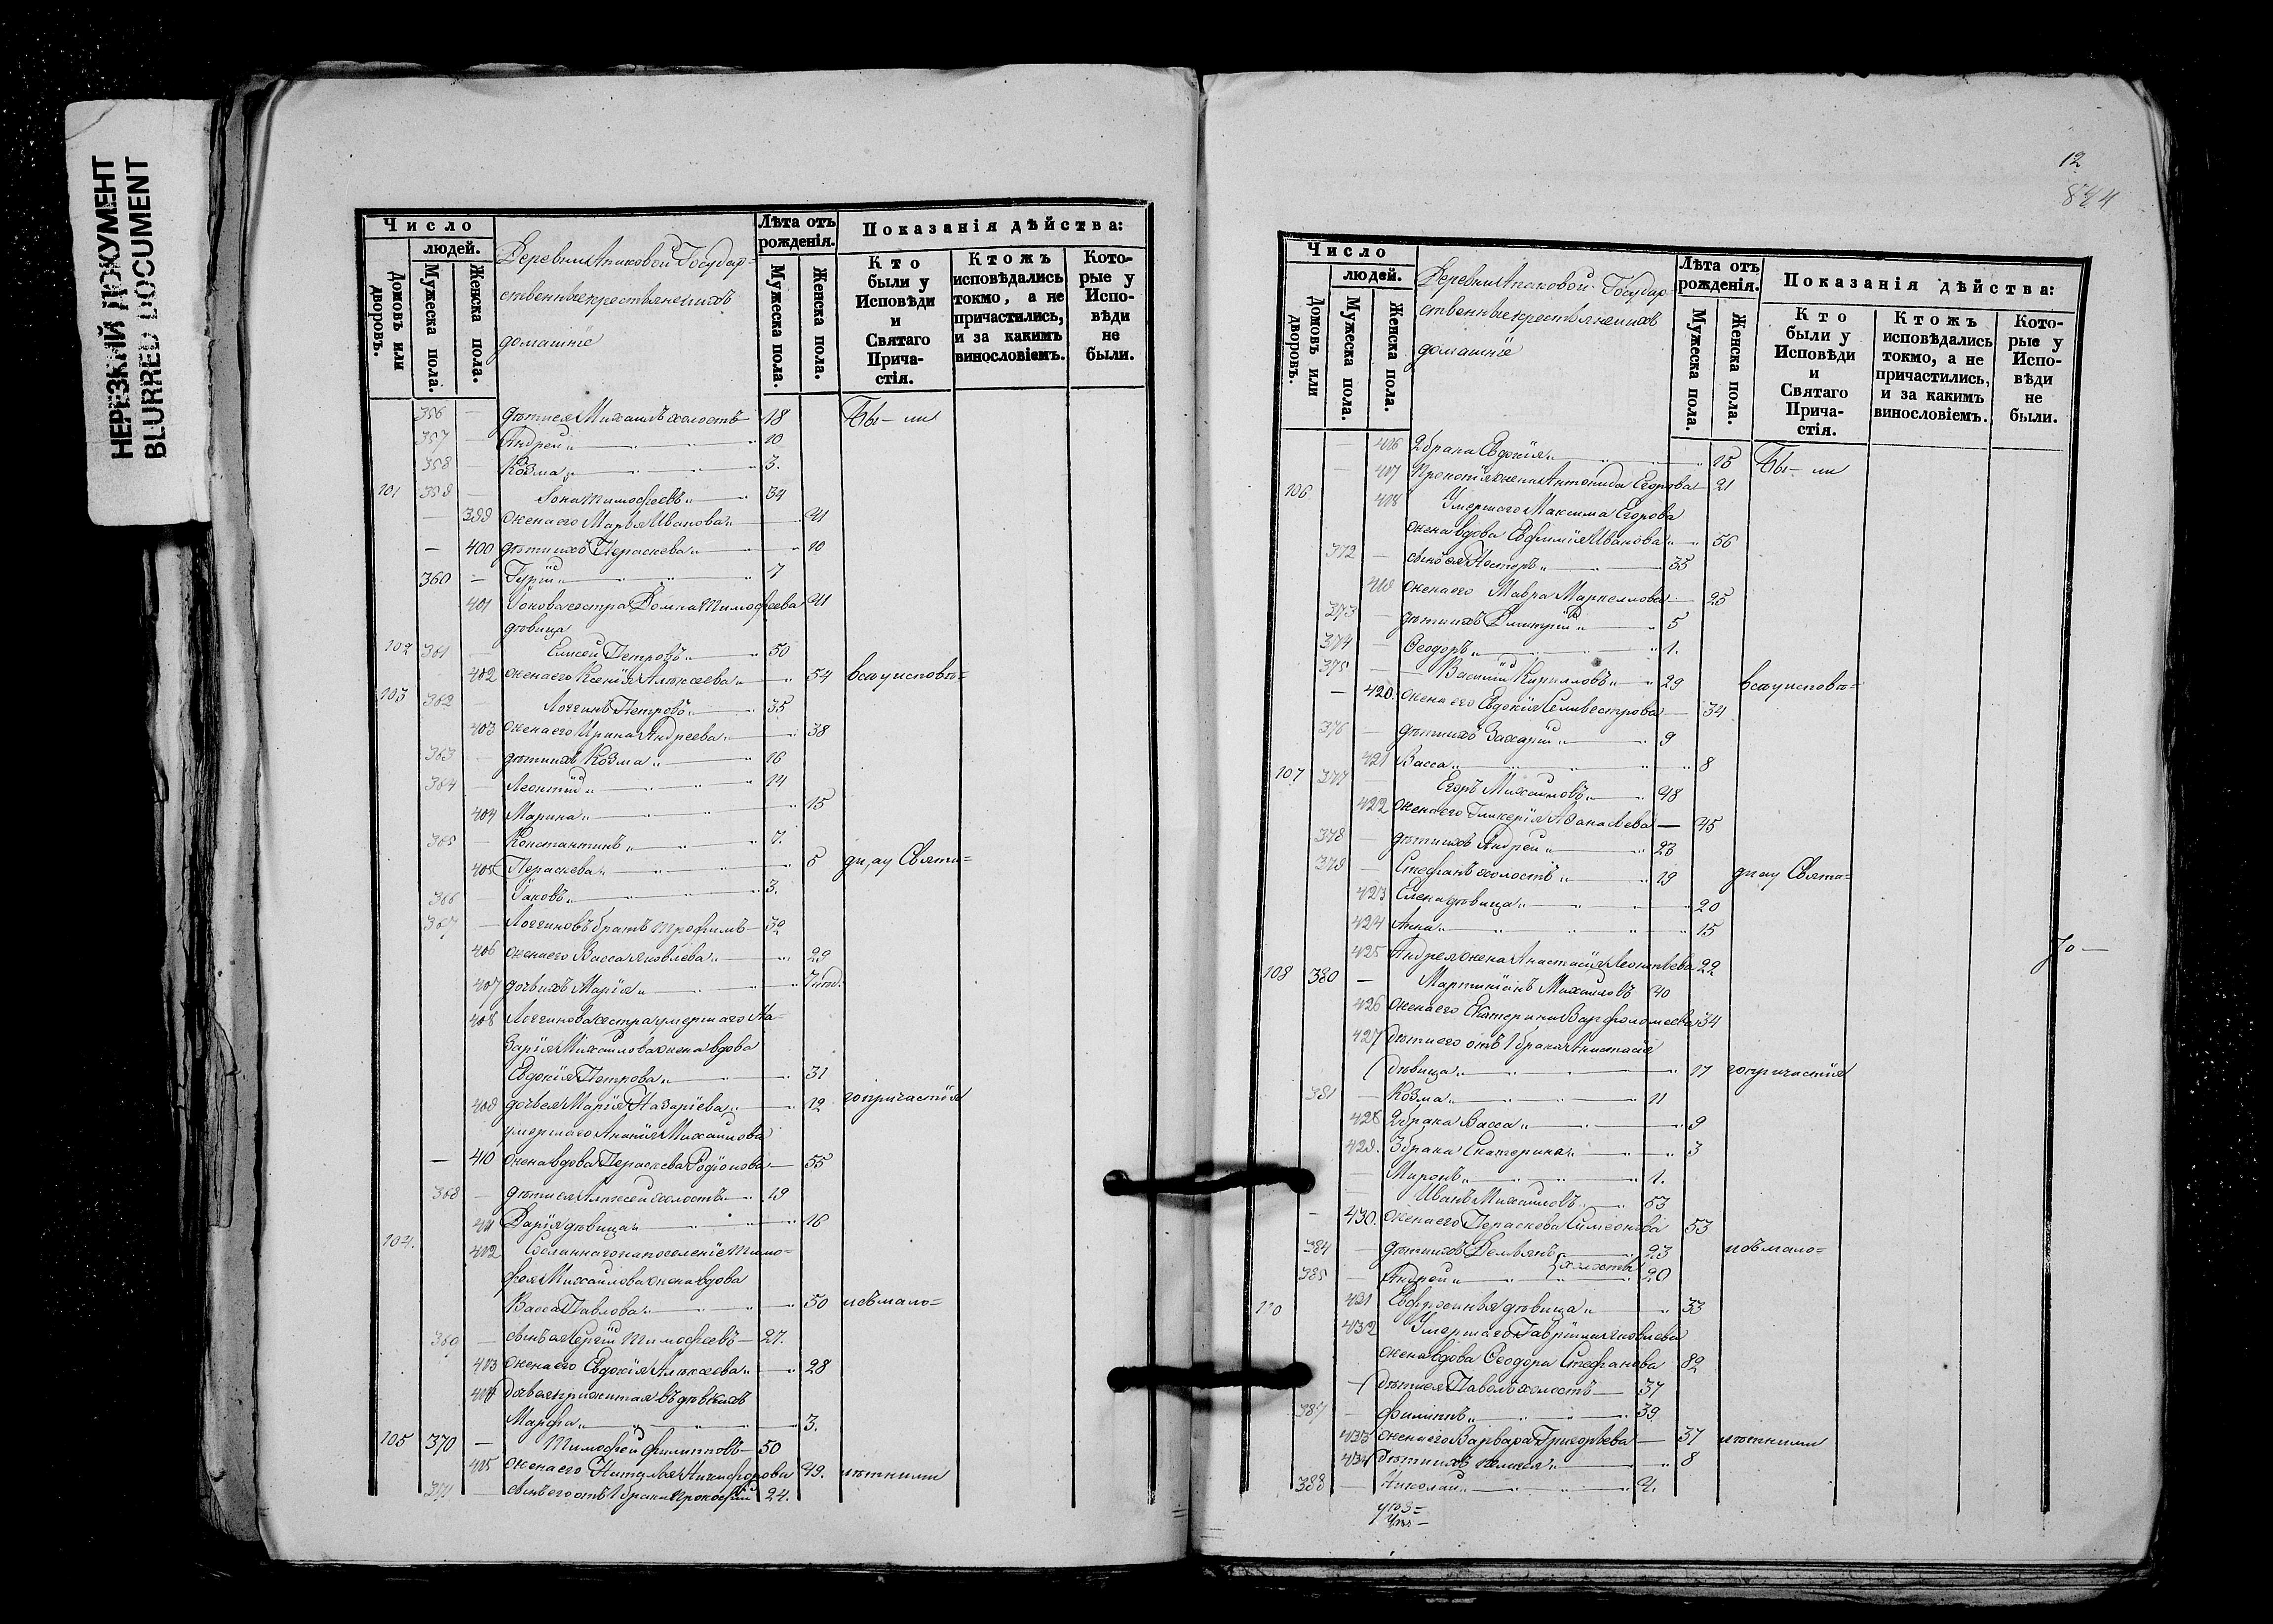 НЕРЕЗКИЙ ДОКУМЕНТ
BLURRED DOCUMENT
Число
людей.
Домовъ или дворовъ.
Мужеска пола.
Женска пола.
Деревни Атаковой Государ-
ственные крестьяне и ихъ
домашніе
Лѣта отъ рожденія.
Мужеска пола.
Женска пола.
Показанія дѣйства:
Кто были у Исповѣди и Святаго Прича-стія.
Ктожъ исповѣдались токмо, а не причастились, и за какимъ винословіемъ.
Кото-рые у Испо-вѣди не были.
356 — дѣти ея Михаилъ холостъ 18 Бы- ли
357 — Андрей 10
358 — Козма 3.
101 359 — Іона Тимофеевъ 34
— 399 жена его Марѳа Иванова 41
— 400 дѣти ихъ Параскева 10
360 — Гурій 7
401 Іонова сестра Домна Тимофеева 41
дѣвица
102 361 — Елисей Петровъ 50
402 жена его Ксенія Алексеева 54 всѣ у исповѣ=
103 362 Логгинъ Петровъ 35
403 жена его Ирина Андреева 38
363 — дѣти ихъ Козма 16
364 — Леонтій 14
404 Марина 15
365 — Константинъ 7.
405 Параскева 5 ди, а у Свята=
366 — Іаковъ 3.
367 — Логгиновъ братъ Трофимъ 32
406 жена его Васса Яковлева 29
407 дочь ихъ Марія
408 Логгинова сестра умершаго На-
зарія Михаилова жена вдова
Евдокія Петрова 31
409 дочь ея Марія Назаріева 12 го причастія
умершаго Ананія Михаилова
— 410 жена вдова Параскева Родіонова 55
368 — дѣти ея Алексей холостъ 19
411 Дарія дѣвица 16
104. 412 Сосланнаго на поселеніе Тимо-
фея Михаилова жена вдова
Васса Павлова 50 и съ мало=
369 — сынъ ея Сергій Тимофеевъ 27.
413 жена его Евдокія Алексеева 28
414 дочь ея прижитая въ дѣвкахъ
Марфа 3.
105 370 — Тимофей Филипповъ 50
415 жена его Наталья Никифорова 49. лѣтними
371 — сынъ его отъ 1 брака Прокофій 24.
12
844
Число
людей.
Домовъ или дворовъ.
Мужеска пола.
Женска пола.
Деревни Атаковой Государ-
ственные крестьяне и ихъ
домашніе
Лѣта отъ рожденія.
Мужеска пола.
Женска пола.
Показанія дѣйства:
Кто были у Исповѣди и Святаго Прича-стія.
Ктожъ исповѣдались токмо, а не причастились, и за какимъ винословіемъ.
Кото-рые у Испо-вѣди не были.
— 416 2 брака Евдокія 15 Бы- ли
— 417 Прокопія жена Антонида Егорова 21
106 418 Умершаго Максима Егорова
жена вдова Евфимія Иванова 56
372 — сынъ ея Несторъ 35
419 жена его Мавра Маркеллова 25
373 — дѣти ихъ Димитрій 5
374 — Ѳеодоръ 1.
375 — Василій Кирилловъ 29 всѣ у исповѣ=
— 420. жена его Евдокія Селивестрова 34
376 — дѣти ихъ Захарій 9
421 Васса 8
107 377 Егоръ Михаиловъ 48
422 жена его Гликерія Аѳанасьева 45
378 — дѣти ихъ Андрей 23
379 — Стефанъ холостъ 19 ди а у Свята=
423 Елена дѣвица 20
424 Анна 15
425 Андрея жена Анастасія Леонтьева 22
108 380 — Мартиніанъ Михаиловъ 40
426 жена его Екатерина Варфоломеева 34
427 Дѣти его отъ 1 брака Анастасія
дѣвица 17 го причастія
381 — Козма 11
428 2 брака Васса 9
429. 3 брака Екатерина 3
— Миронъ 1.
Иванъ Михаиловъ 53
— 430. жена его Параскева Симеонова 53
384 — дѣти ихъ Демьянъ 23 и съ мало=
холосты
385 — Андрей 20
431 Евфросинья дѣвица 33
110 432 Умершаго Гавріила Яковлева
жена вдова Ѳеодора Стефанова 82
Дѣти ея Павелъ холостъ 37
387 — Филиппъ 39
433 жена его Варвара Григорьева 37 лѣтними
434 Дѣти ихъ 8
388 — Николай 4.